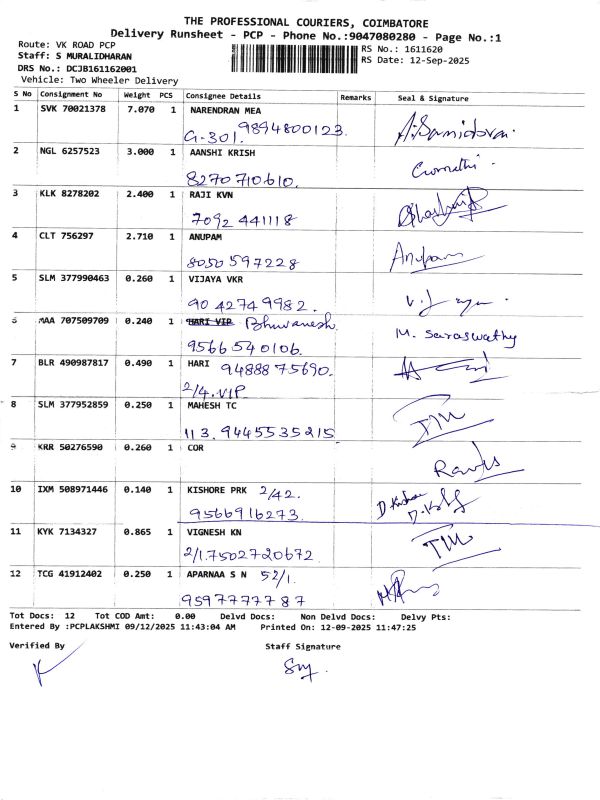 THE PROFESSIONAL COURIERS, COIMBATORE
Delivery Runsheet - PCP - Phone No.:9047080280 - Page No.:1
Route: VK ROAD PCP RS No.: 1611620
Staff: S MURALIDHARAN RS Date: 12-Sep-2025
DRS No.: DCJB161162001
Vehicle: Two Wheeler Delivery
S No Consignment No Weight PCS Consignee Details Remarks Seal & Signature
1 SVK 70021378 7.070 1 NARENDRAN MEA
G-301. 9894800123.
2 NGL 6257523 3.000 1 AANSHI KRISH
8270710610.
3 KLK 8278202 2.400 1 RAJI KVN
7092 441118
4 CLT 756297 2.710 1 ANUPAM
8050 597228 Anupam
5 SLM 377990463 0.260 1 VIJAYA VKR
90 42749982.
6 MAA 707509709 0.240 1 HARI VIP Bhuvanesh.
9566540106. M. Saraswathy
7 BLR 490987817 0.490 1 HARI 94888 75690.
2/4. VIP
8 SLM 377952859 0.250 1 MAHESH TC
113. 9445535215
9 KRR 50276590 0.260 1 COR
10 IXM 508971446 0.140 1 KISHORE PRK 2/42.
9566916273.
11 KYK 7134327 0.865 1 VIGNESH KN
2/1.7502720672
12 TCG 41912402 0.250 1 APARNAA S N 52/1.
9597777787
Tot Docs: 12 Tot COD Amt: 0.00 Delvd Docs: Non Delvd Docs: Delvy Pts:
Entered By :PCPLAKSHMI 09/12/2025 11:43:04 AM Printed On: 12-09-2025 11:47:25
Verified By Staff Signature